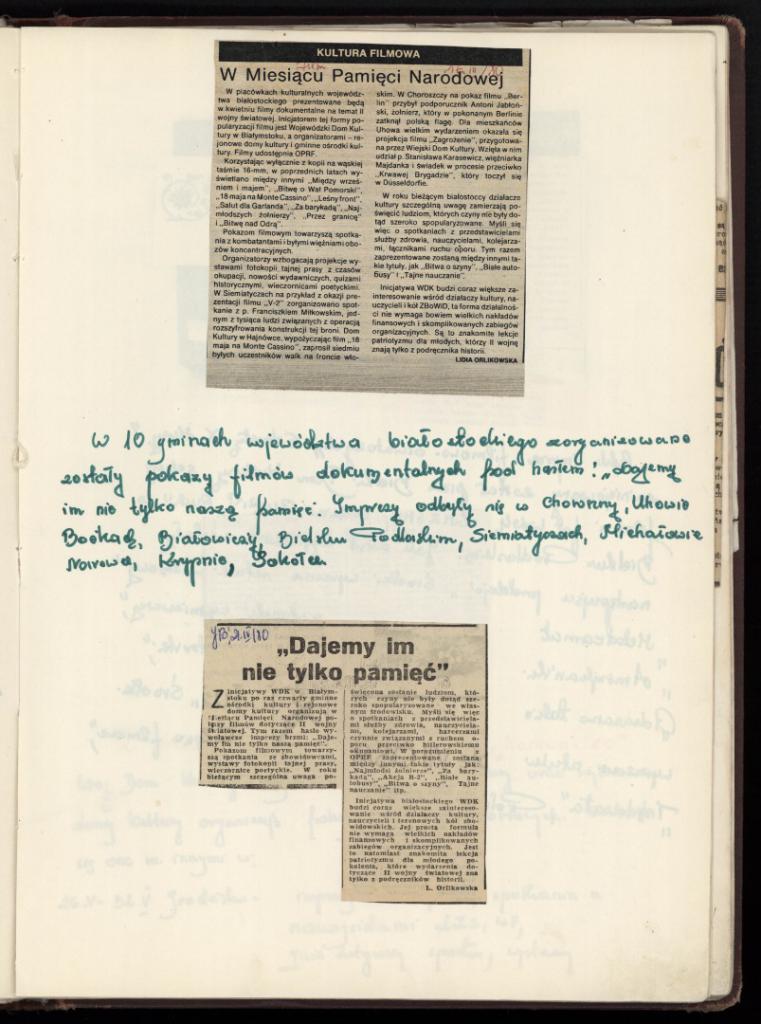 KULTURA FILMOWA
W Miesiącu Pamięci Narodowej
W placówkach kulturalnych wojewódz-
twa białostockiego prezentowane będą
w kwietniu filmy dokumentalne na temat II
wojny światowej. Inicjatorem tej formy po-
pularyzacji filmu jest Wojewódzki Dom Kul-
tury w Białymstoku, a organizatorami – re-
jonowe domy kultury i gminne ośrodki kul-
tury. Filmy udostępnia OPRF.
Korzystając wyłącznie z kopii na wąskiej
taśmie 16-mm, w poprzednich latach wy-
świetlano między innymi „Między wrześ-
niem i majem”, „Bitwę o Wał Pomorski”,
„18 maja na Monte Cassino”, „Leśny front”,
„Salut dla Garlanda”, „Za barykadą”, „Naj-
młodszych żołnierzy”, „Przez granicę”
i „Bitwę nad Odrą”.
Pokazom filmowym towarzyszą spotka-
nia z kombatantami i byłymi więźniami obo-
zów koncentracyjnych.
Organizatorzy wzbogacają projekcje wy-
stawami fotokopii tajnej prasy z czasów
okupacji, nowości wydawniczych, quizami
historycznymi, wieczornicami poetyckimi.
W Siemiatyczach na przykład z okazji pre-
zentacji filmu „V-2” zorganizowano spot-
kanie z p. Franciszkiem Miłkowskim, jed-
nym z tysiąca ludzi związanych z operacją
rozszyfrowania konstrukcji tej broni. Dom
Kultury w Hajnówce, wypożyczając film „18
maja na Monte Cassino”, zaprosił siedmiu
byłych uczestników walk na froncie wło-
skim. W Choroszczy na pokaz filmu „Ber-
lin” przybył podporucznik Antoni Jabłoń-
ski, żołnierz, który w pokonanym Berlinie
zatknął polską flagę. Dla mieszkańców
Uhowa wielkim wydarzeniem okazała się
projekcja filmu „Zagrożenie”, przygotowa-
na przez Wiejski Dom Kultury. Wzięła w nim
udział p. Stanisława Karasewicz, więźniarka
Majdanka i świadek w procesie przeciwko
„Krwawej Brygadzie”, który toczył się
w Düsseldorfie.
W roku bieżącym białostoccy działacze
kultury szczególną uwagę zamierzają po-
święcić ludziom, których czyny nie były do-
tąd szeroko spopularyzowane. Myśli się
więc o spotkaniach z przedstawicielami
służby zdrowia, nauczycielami, kolejarza-
mi, łącznikami ruchu oporu. Tym razem
zaprezentowane zostaną między innymi ta-
kie tytuły, jak „Bitwa o szyny”, „Białe auto-
busy” i „Tajne nauczanie”.
Inicjatywa WDK budzi coraz większe za-
interesowanie wśród działaczy kultury, na-
uczycieli i kół ZBoWiD, ta forma działalnoś-
ci nie wymaga bowiem wielkich nakładów
finansowych i skomplikowanych zabiegów
organizacyjnych. Są to znakomite lekcje
patriotyzmu dla młodych, którzy II wojnę
znają tylko z podręcznika historii.
LIDIA ORLIKOWSKA
W 10 gminach województwa białostockiego zorganizowane
zostały pokazy filmów dokumentalnych pod hasłem: „Dajemy
im nie tylko naszą pamięć. Imprezy odbyły się w Choroszczy, Uhowie
Boćkach, Białowieży, Bielsku Podlaskim, Siemiatyczach, Michałowie
Narewce, Krypnie, Sokółce
„Dajemy im
nie tylko pamięć”
Z inicjatywy WDK w Białym-
stoku po raz czwarty gminne
ośrodki kultury i rejonowe
domy kultury organizują w
Miesiącu Pamięci Narodowej po-
kazy filmów dotyczące II wojny
światowej. Tym razem hasło wy-
woławcze imprezy brzmi: „Daje-
my im nie tylko naszą pamięć”.
Pokazom filmowym towarzy-
szą spotkania ze zbowidowcami,
wystawy fotokopii tajnej prasy,
wieczornice poetyckie. W roku
bieżącym szczególna uwaga po-
święcona zostanie ludziom, któ-
rych czyny nie były dotąd sze-
roko spopularyzowane we włas-
nym środowisku. Myśli się więc
o spotkaniach z przedstawiciela-
mi służby zdrowia, nauczyciela-
mi, kolejarzami, harcerzami
czynnie związanymi z ruchem o-
poru przeciwko hitlerowskiemu
okupantowi. W porozumieniu z
OPRF zaprezentowane zostaną
między innymi takie tytuły jak:
„Najmłodsi żołnierze”, „Za bary-
kadą”, „Akcja B-2”, „Białe au-
tobusy”, „Bitwa o szyny”, „Tajne
nauczanie” itp.
Inicjatywa białostockiego WDK
budzi coraz większe zaintereso-
wanie wśród działaczy kultury,
nauczycieli i terenowych kół zbo-
widowskich. Jej prosta formuła
nie wymaga wielkich nakładów
finansowych i skomplikowanych
zabiegów organizacyjnych. Jest
to natomiast znakomita lekcja
patriotyzmu dla młodego po-
kolenia, które wydarzenia do-
tyczące II wojny światowej zna
tylko z podręczników historii.
L. Orlikowska